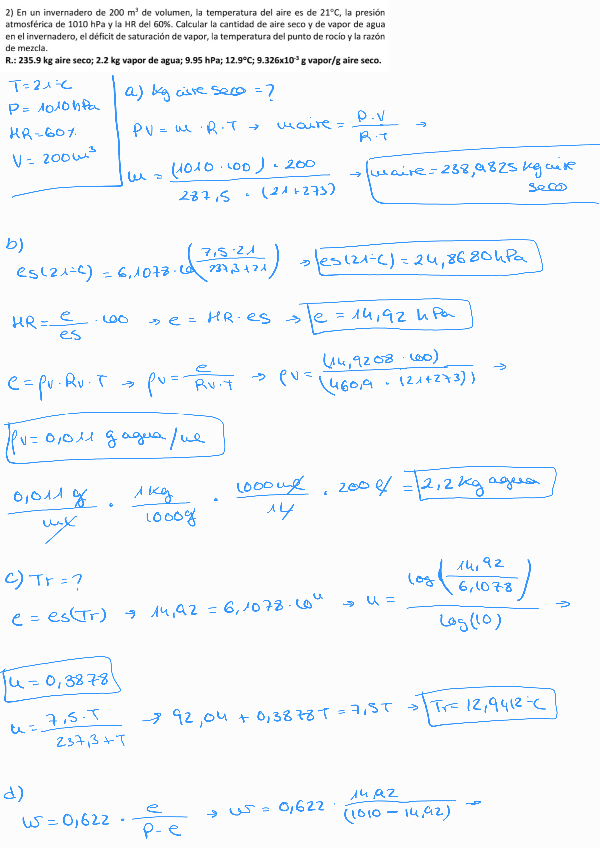 2) En un invernadero de 200 m³ de volumen, la temperatura del aire es de 21°C, la presión
atmosférica de 1010 hPa y la HR del 60%. Calcular la cantidad de aire seco y de vapor de agua
en el invernadero, el déficit de saturación de vapor, la temperatura del punto de rocío y la razón
de mezcla.
R.: 235.9 kg aire seco; 2.2 kg vapor de agua; 9.95 hPa; 12.9°C; 9.326x10⁻³ g vapor/g aire seco.
T=21°C
P=1010hPa
HR=60%
V=200m³
a) kg aire seco=?
PV = m · R · T → maire = P·V / R·T →
m = (1010·100) · 200 / 287,5 · (21+273) → maire = 238,9825 kg aire seco
b)
es(21°C) = 6,1078·10^(7,5·21 / 237,3+21) → es(21°C) = 24,8680hPa
HR = e/es · 100 → e = HR·es → e = 14,92 hPa
e = ρv·Rv·T → ρv = e / Rv·T → ρv = (14,9208·100) / (460,9 · (21+273)) →
ρv = 0,011 g agua/ml
0,011 g / ml · 1kg / 1000g · 1000ml / 1l · 200 l = 2,2 kg agua
c) Tr = ?
e = es(Tr) → 14,92 = 6,1078·10^u → u = log(14,92 / 6,1078) / log(10) →
u = 0,3878
u = 7,5·T / 237,3+T → 92,04 + 0,3878T = 7,5T → Tr = 12,9412°C
d)
w = 0,622 · e / P-e → w = 0,622 · 14,92 / (1010-14,92) →